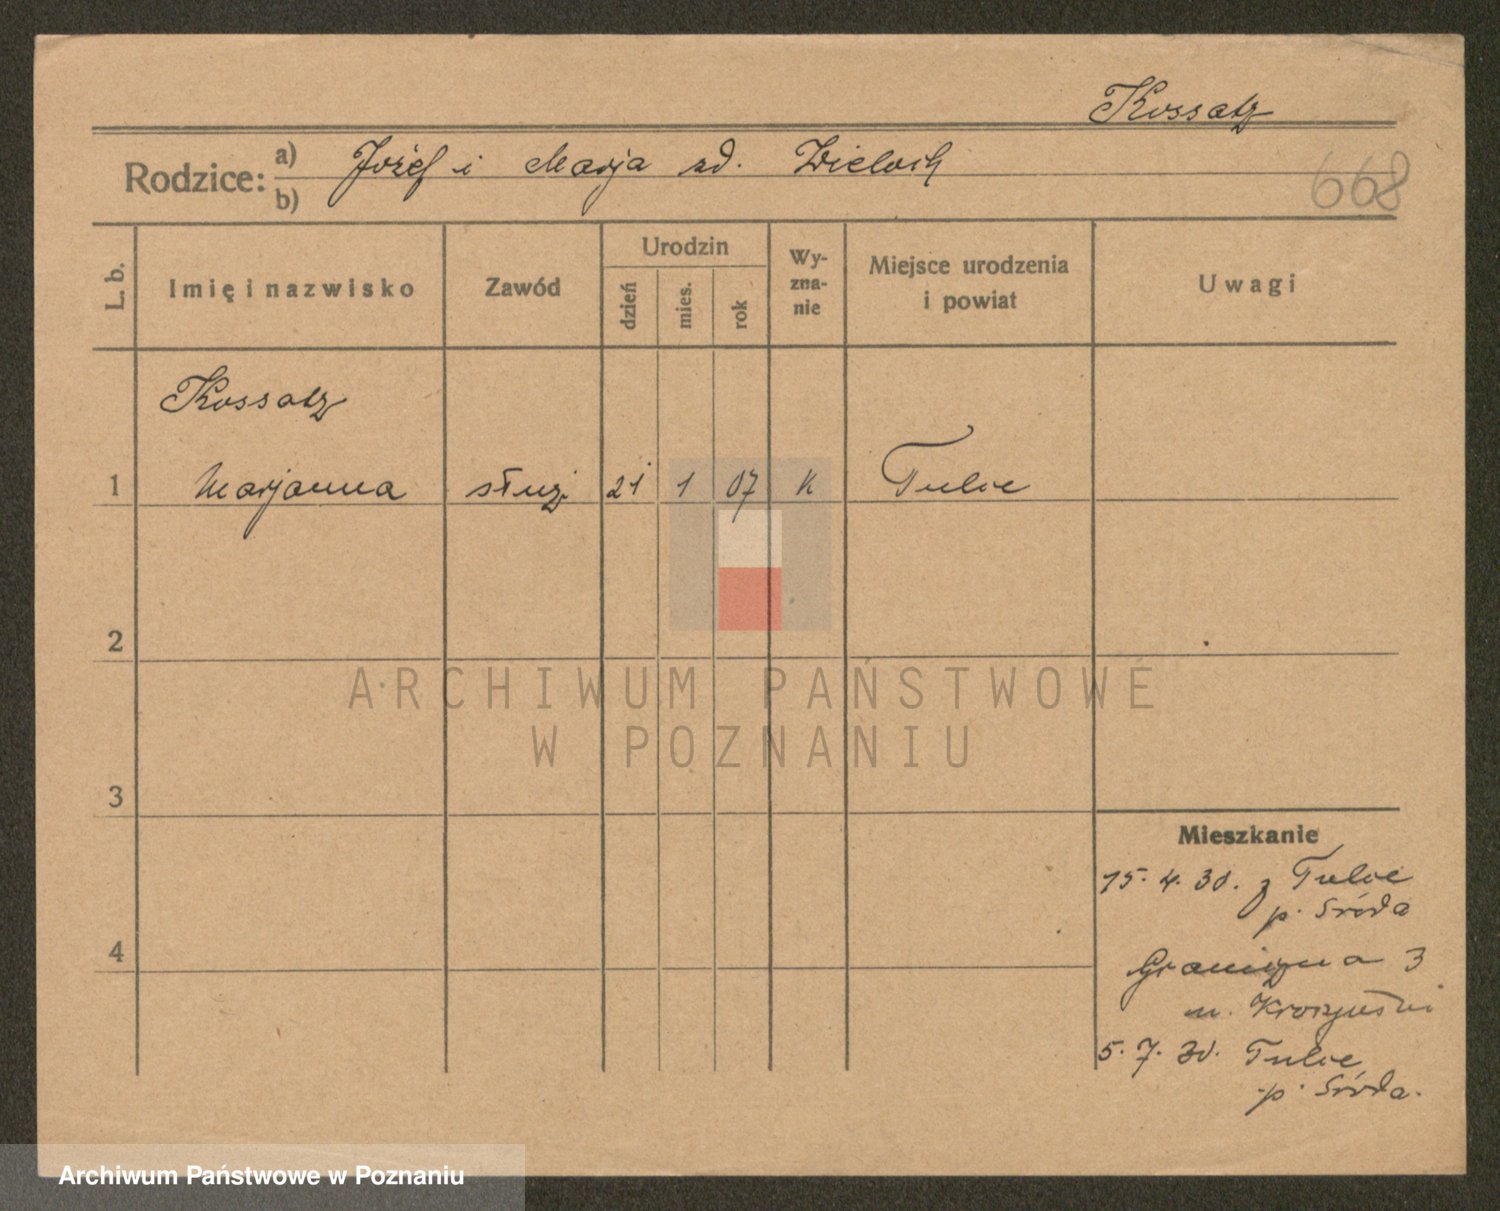 Kossatz
Rodzice: a) Józef i Marja zd. Wieloch
b)
668
L. b.
Imię i nazwisko
Zawód
Urodzin
dzień
mies.
rok
Wy-
zna-
nie
Miejsce urodzenia
i powiat
Uwagi
Kossatz
1 Marjanna służ. 21 1 07 K Tulce
2
3
4
Mieszkanie
15. 4. 30. z Tulce
p. Środa
Graniczna 3
u.
5. 7. 30. Tulce
p. Środa.
ARCHIWUM PAŃSTWOWE
W POZNANIU
Archiwum Państwowe w Poznaniu